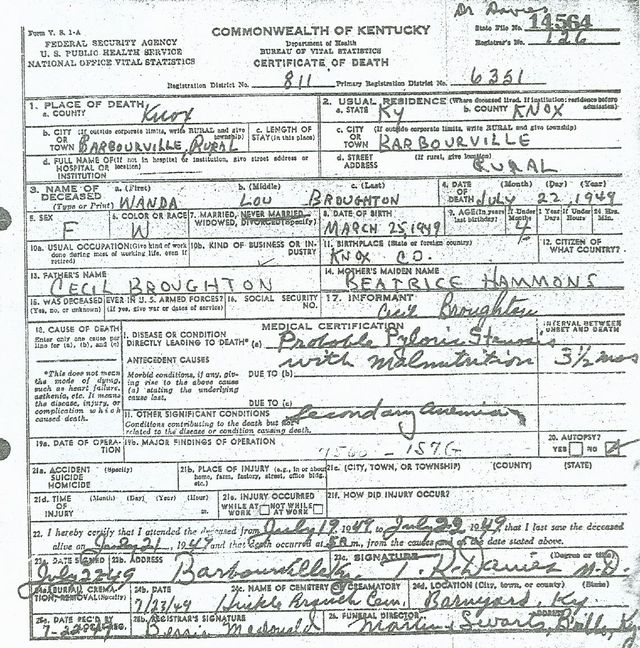 Dr Davies
Form V. S. 1-A
COMMONWEALTH OF KENTUCKY
State File No. 14564
FEDERAL SECURITY AGENCY
Department of Health
Registrar's No. 126
U. S. PUBLIC HEALTH SERVICE
BUREAU OF VITAL STATISTICS
NATIONAL OFFICE VITAL STATISTICS
CERTIFICATE OF DEATH
Registration District No. 811 Primary Registration District No. 6351
1. PLACE OF DEATH
a. COUNTY Knox
2. USUAL RESIDENCE (Where deceased lived. If institution: residence before admission)
a. STATE Ky b. COUNTY KNOX
b. CITY (If outside corporate limits, write RURAL and give township) OR TOWN BARBOURVILLE, RURAL
c. LENGTH OF STAY (in this place)
c. CITY (If outside corporate limits, write RURAL and give township) OR TOWN BARBOURVILLE
d. FULL NAME OF (If not in hospital or institution, give street address or location) HOSPITAL OR INSTITUTION
d. STREET ADDRESS (If rural, give location) RURAL
3. NAME OF DECEASED (Type or Print) a. (First) WANDA b. (Middle) LOU c. (Last) BROUGHTON
4. DATE OF DEATH (Month) (Day) (Year) July 22, 1949
5. SEX F
6. COLOR OR RACE W
7. MARRIED, NEVER MARRIED, WIDOWED, DIVORCED (Specify)
8. DATE OF BIRTH MARCH 25, 1949
9. AGE (In years last birthday) If Under 1 Year Months 4 Days If Under 24 Hrs. Hours Min.
10a. USUAL OCCUPATION (Give kind of work done during most of working life, even if retired)
10b. KIND OF BUSINESS OR INDUSTRY
11. BIRTHPLACE (State or foreign country) KNOX CO.
12. CITIZEN OF WHAT COUNTRY?
13. FATHER'S NAME CECIL BROUGHTON
14. MOTHER'S MAIDEN NAME BEATRICE HAMMONS
15. WAS DECEASED EVER IN U. S. ARMED FORCES? (Yes, no, or unknown) (If yes, give war or dates of service)
16. SOCIAL SECURITY NO.
17. INFORMANT Cecil Broughton
18. CAUSE OF DEATH
Enter only one cause per line for (a), (b), and (c)
MEDICAL CERTIFICATION
INTERVAL BETWEEN ONSET AND DEATH
I. DISEASE OR CONDITION DIRECTLY LEADING TO DEATH* (a) Probable Pyloric Stenosis
with Malnutrition 3 1/2 mos
*This does not mean the mode of dying, such as heart failure, asthenia, etc. It means the disease, injury, or complication which caused death.
ANTECEDENT CAUSES
Morbid conditions, if any, giving rise to the above cause (a) stating the underlying cause last.
DUE TO (b)
DUE TO (c)
II. OTHER SIGNIFICANT CONDITIONS
Conditions contributing to the death but not related to the disease or condition causing death.
Secondary Anemia
19a. DATE OF OPERATION
19b. MAJOR FINDINGS OF OPERATION
20. AUTOPSY? YES NO
21a. ACCIDENT SUICIDE HOMICIDE (Specify)
21b. PLACE OF INJURY (e.g., in or about home, farm, factory, street, office bldg., etc.)
21c. (CITY, TOWN, OR TOWNSHIP) (COUNTY) (STATE)
21d. TIME OF INJURY (Month) (Day) (Year) (Hour) m
21e. INJURY OCCURRED WHILE AT WORK NOT WHILE AT WORK
21f. HOW DID INJURY OCCUR?
22. I hereby certify that I attended the deceased from July 19 1949 to July 22, 1949 that I last saw the deceased
alive on July 21, 1949 and that death occurred at 5 A m., from the causes and on the date stated above.
23a. DATE SIGNED July 22 49
23b. ADDRESS Barbourville Ky
23c. SIGNATURE T. R. Davies M.D. (Degree or title)
24a. BURIAL, CREMATION, REMOVAL (Specify)
24b. DATE 7/23/49
24c. NAME OF CEMETERY OR CREAMATORY Hinkle Branch Cem.
24d. LOCATION (City, town, or county) (State) Barnyard Ky.
25a. REC'D BY LOCAL REG. 7-22-49
25b. REGISTRAR'S SIGNATURE Bessie McDonald
26. FUNERAL DIRECTOR ADDRESS